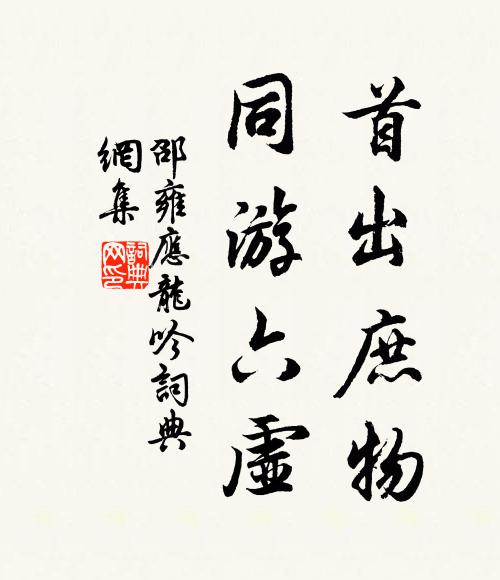 首出庶物
同游六虛
邵雍應龍吟詞典
網集
詞典网印